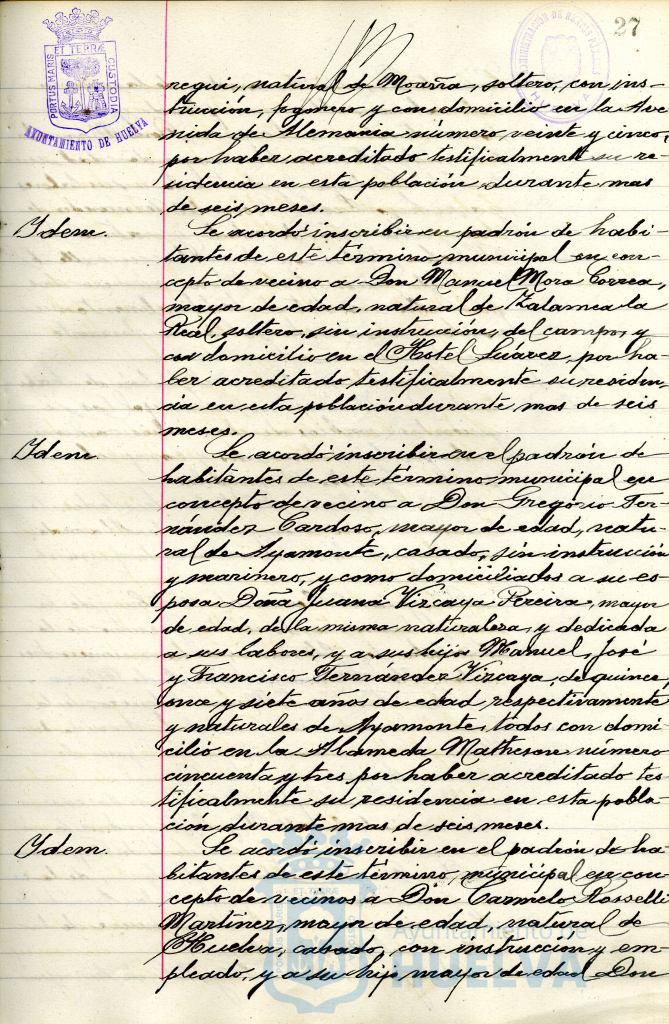 27
PORTUS MARIS ET TERRÆ CUSTODIA
AYUNTAMIENTO DE HUELVA
regui, natural de Moaña, soltero, con ins-
trucción, fogonero y con domicilio en la Ave
nida de Alemania número veinte y cinco,
por haber acreditado testificalmente su re-
sidencia en esta población durante mas
de seis meses.
Idem.
Se acordó inscribir en padrón de habi-
tantes de este término municipal en con-
cepto de vecino a Don Manuel Mora Correa,
mayor de edad, natural de Zalamea la
Real, soltero, sin instrucción, del campo, y
con domicilio en el Hotel Suárez, por ha-
ber acreditado testificalmente su residen-
cia en esta población durante mas de seis
meses.
Idem.
Se acordó inscribir en el padrón de
habitantes de este término municipal en
concepto de vecino a Don Gregorio Fer-
nández Cardoso, mayor de edad, natu-
ral de Ayamonte, casado, sin instrucción
y marinero, y como domiciliados a su es
posa Doña Juana Vizcaya Pereira, mayor
de edad, de la misma naturaleza, y dedicada
a sus labores, y a sus hijos Manuel, José
y Francisco Fernández Vizcaya, de quince,
once y siete años de edad respectivamente
y naturales de Ayamonte, todos con domi-
cilio en la Alameda Matheson número
cincuenta y tres por haber acreditado tes
tificalmente su residencia en esta pobla-
ción durante mas de seis meses.
Idem.
Se acordó inscribir en el padrón de ha-
bitantes de este término municipal en con
cepto de vecinos a Don Carmelo Rosselli
Martinez, mayor de edad, natural de
Huelva, casado, con instruccion y em-
pleado, y a su hijo mayor de edad Don
Ayuntamiento de
HUELVA